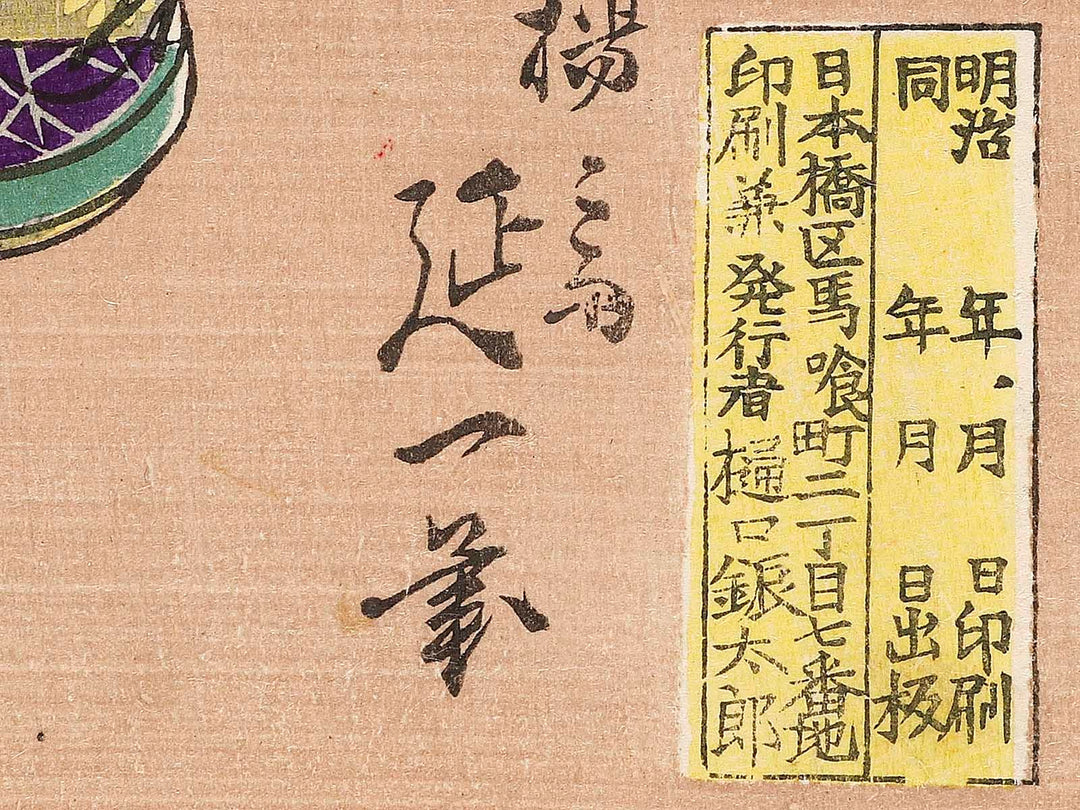 明治 年 月 日印刷
同 年 月 日出板
日本橋区馬喰町二丁目七番地
印刷兼発行者 樋口銀太郎
楊
斎
延一筆